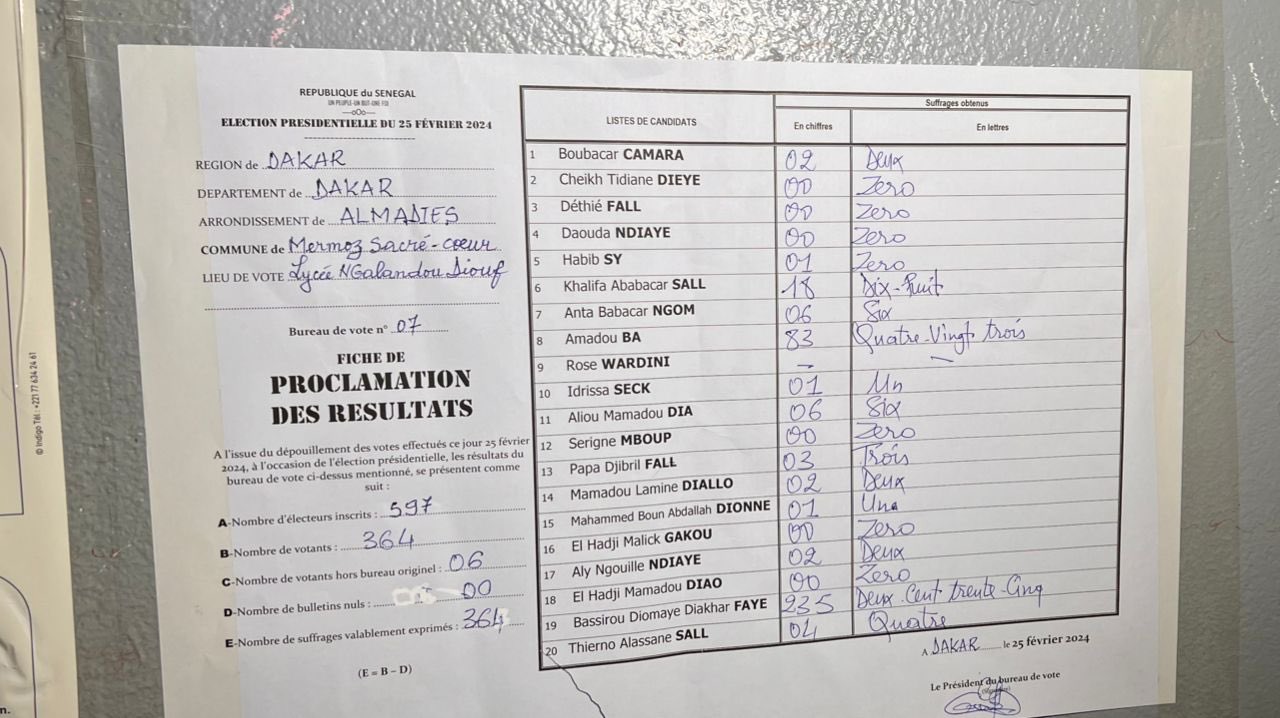 REPUBLIQUE du SENEGAL
UN PEUPLE-UN BUT-UNE FOI
---oOo---
ELECTION PRESIDENTIELLE DU 25 FÉVRIER 2024
REGION de DAKAR
DEPARTEMENT de DAKAR
ARRONDISSEMENT de ALMADIES
COMMUNE de Mermoz Sacré-coeur
LIEU DE VOTE Lycée NGalandou Diouf
Bureau de vote n° 07
FICHE DE
PROCLAMATION
DES RESULTATS
A l'issue du dépouillement des votes effectués ce jour 25 février
2024, à l'occasion de l'élection présidentielle, les résultats du
bureau de vote ci-dessus mentionné, se présentent comme
suit :
A-Nombre d'électeurs inscrits : 597
B-Nombre de votants : 364
C-Nombre de votants hors bureau originel : 06
D-Nombre de bulletins nuls : 00
E-Nombre de suffrages valablement exprimés : 364
(E = B – D)
LISTES DE CANDIDATS
Suffrages obtenus
En chiffres En lettres
1 Boubacar CAMARA 02 Deux
2 Cheikh Tidiane DIEYE 00 Zero
3 Déthié FALL 00 Zero
4 Daouda NDIAYE 00 Zero
5 Habib SY 01 Zero
6 Khalifa Ababacar SALL 18 Dix-huit
7 Anta Babacar NGOM 06 Six
8 Amadou BA 83 Quatre-Vingt trois
9 Rose WARDINI – –
10 Idrissa SECK 01 Un
11 Aliou Mamadou DIA 06 Six
12 Serigne MBOUP 00 Zero
13 Papa Djibril FALL 03 Trois
14 Mamadou Lamine DIALLO 02 Deux
15 Mahammed Boun Abdallah DIONNE 01 Una
16 El Hadji Malick GAKOU 00 Zero
17 Aly Ngouille NDIAYE 02 Deux
18 El Hadji Mamadou DIAO 00 Zero
19 Bassirou Diomaye Diakhar FAYE 235 Deux Cent trente-Cinq
20 Thierno Alassane SALL 04 Quatre
A DAKAR le 25 février 2024
Le Président du bureau de vote
© Indigo Tél : +221 77 634 24 61
n.